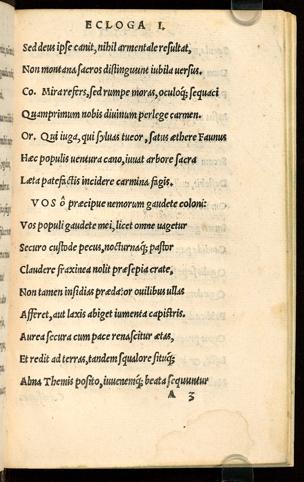 ECLOGA I.
Sed deus ipse canit, nihil armentale resultat,
Non montana sacros distinguunt iubila versus.
Co. Mira refers, sed rumpe moras, oculoq; sequaci
Quamprimum nobis divinum perlege carmen.
Or. Qui iuga, qui sylvas tueor, satus æthere Faunus
Hæc populis ventura cano, iuvat arbore sacra
Læta patefactis incidere carmina fagis.
VOS ô præcipue nemorum gaudete coloni:
Vos populi gaudete mei, licet omne vagetur
Securo custode pecus, nocturnaq; pastor
Claudere fraxinea nolit præsepia crate,
Non tamen insidias prædator ovilibus ullas
Afferet, aut laxis abiget iumenta capistris.
Aurea secura cum pace renascitur ætas,
Et redit ad terras, tandem squalore situq;
Alma Themis posito, iuvenemq; beata sequuntur
A 3